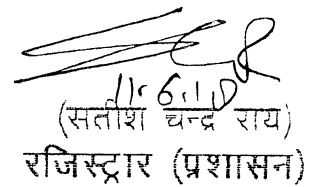 11.6.10
(सतीश चन्द्र राय)
रजिस्ट्रार (प्रशासन)